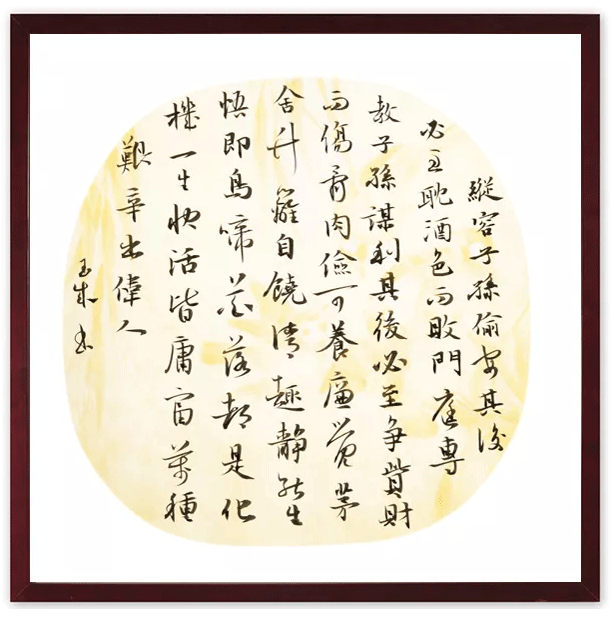 縱容子孫偷安其後
必至耽酒色而敗門庭專
教子孫謀利其後必至爭貲財
而傷骨肉儉可養廉覺茅
舍竹籬自饒清趣靜能生
悟即鳥啼花落都是化
機一生快活皆庸富萬種
艱辛出偉人
玉成書